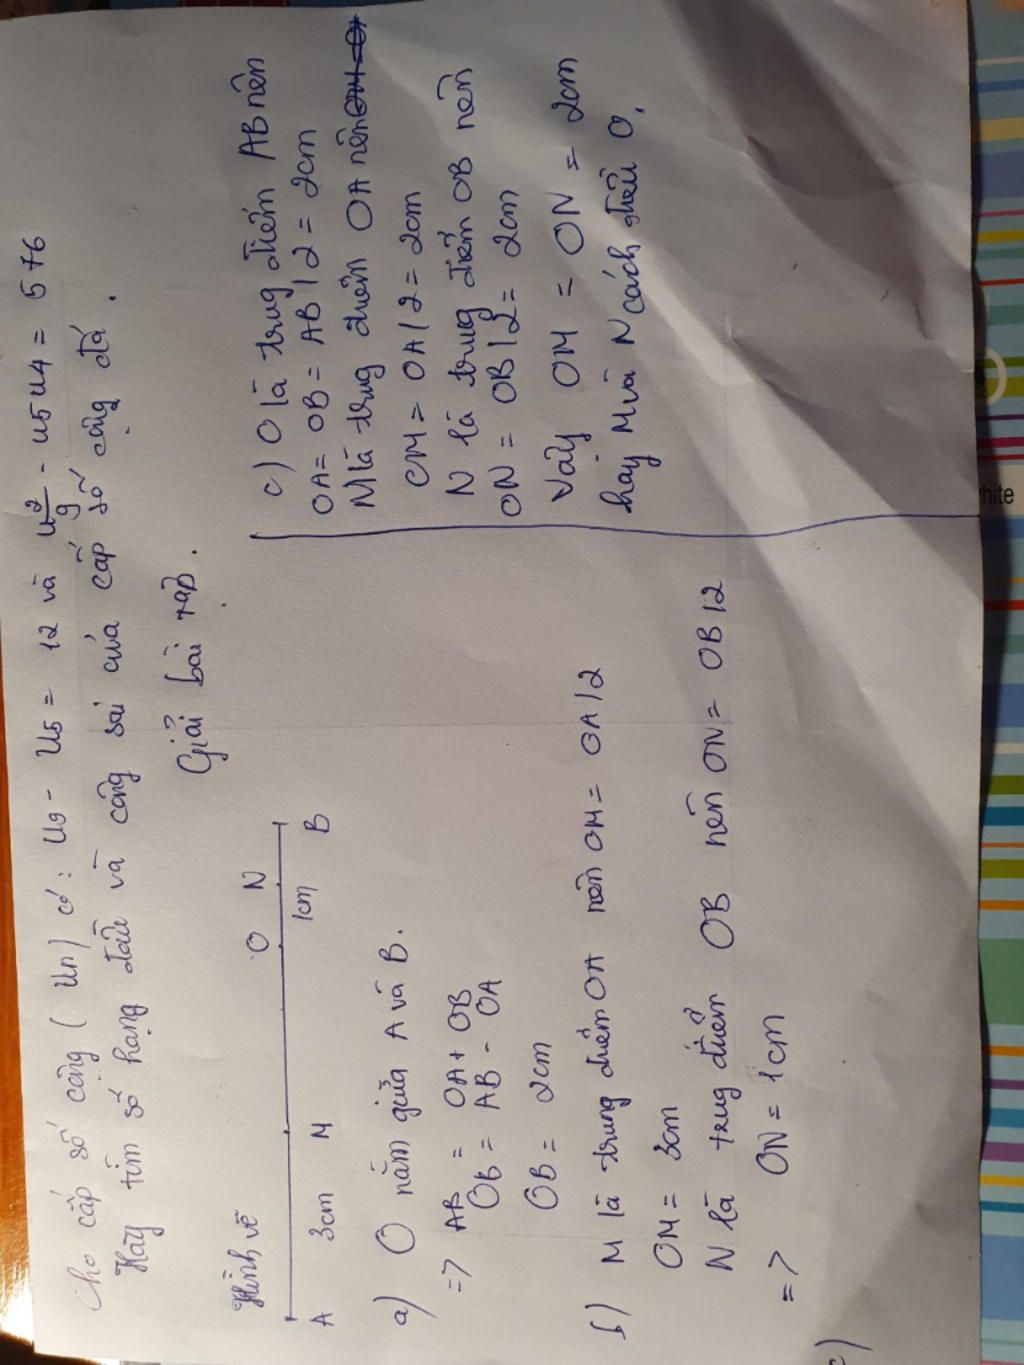 Cho cấp số cộng (Un) có: U9 - U5 = 12 và u²/9 - u5u4 = 576
Hãy tìm số hạng đầu và công sai của cấp số cộng đó.
Giải bài tập.
Hình vẽ
O N
A 3cm M 1cm B
a) O nằm giữa A và B.
=> AB = OA + OB
OB = AB - OA
OB = 2cm
b) M là trung điểm OA nên OM = OA/2
OM = 3cm
N là trung điểm OB nên ON = OB/2
=> ON = 1cm
c)
c) O là trug điểm AB nên
OA = OB = AB/2 = 2cm
M là trug điểm OA nên
OM = OA/2 = 2cm
N là trug điểm OB nên
ON = OB/2 = 2cm
Vậy OM = ON = 2cm
hay M và N cách đều O.
hite